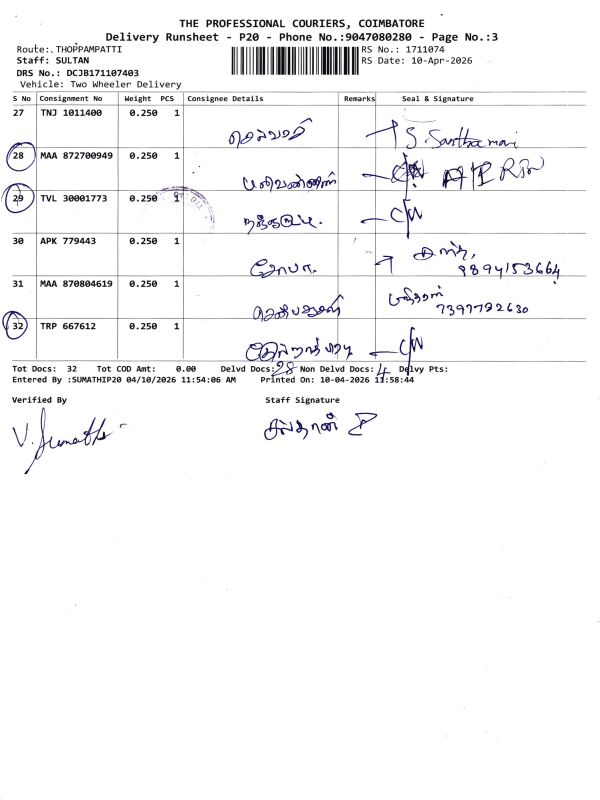 THE PROFESSIONAL COURIERS, COIMBATORE
Delivery Runsheet - P20 - Phone No.:9047080280 - Page No.:3
Route:. THOPPAMPATTI
RS No.: 1711074
Staff: SULTAN
RS Date: 10-Apr-2026
DRS No.: DCJB171107403
Vehicle: Two Wheeler Delivery
S No Consignment No Weight PCS Consignee Details Remarks Seal & Signature
27 TNJ 1011400 0.250 1
செல்வமதி S. Santhamani
28 MAA 872700949 0.250 1
29 TVL 30001773 0.250 1
C/N
30 APK 779443 0.250 1
ஷோபா. 9894153664
31 MAA 870804619 0.250 1
7397792630
32 TRP 667612 0.250 1
C/N
Tot Docs: 32 Tot COD Amt: 0.00 Delvd Docs: 28 Non Delvd Docs: 4 Delvy Pts:
Entered By :SUMATHIP20 04/10/2026 11:54:06 AM Printed On: 10-04-2026 11:58:44
Verified By Staff Signature
V. Sumathi சுல்தான்